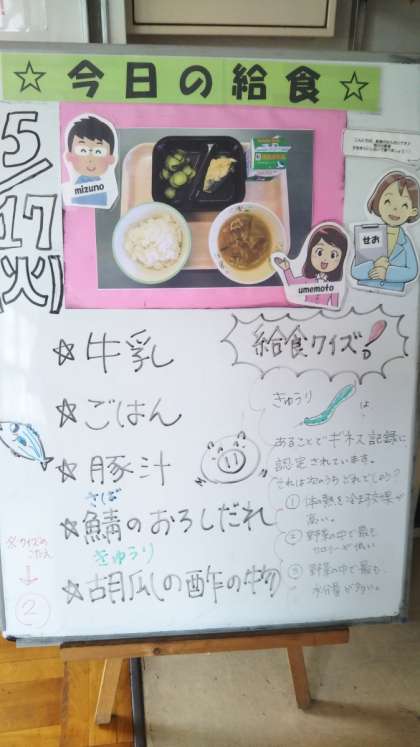 ☆今日の給食☆
5/17(火)
mizuno
umemoto
せお
☆牛乳
☆ごはん
☆豚汁
さば
☆鯖のおろしだれ
きゅうり
☆胡瓜の酢の物
給食クイズ!
きゅうり は
あることでギネス記録に
認定されています。
それは次のうちどれでしょう?
① 体の熱を冷ます効果が
高い。
② 野菜の中で最も
カロリーが低い
③ 野菜の中で最も
水分量が多い。
※クイズの
こたえ
↓
②